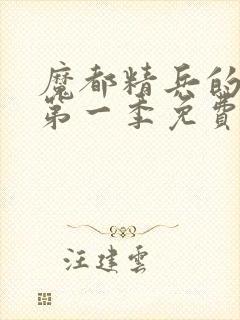 魔都精兵的
第一季免費
汪建雲